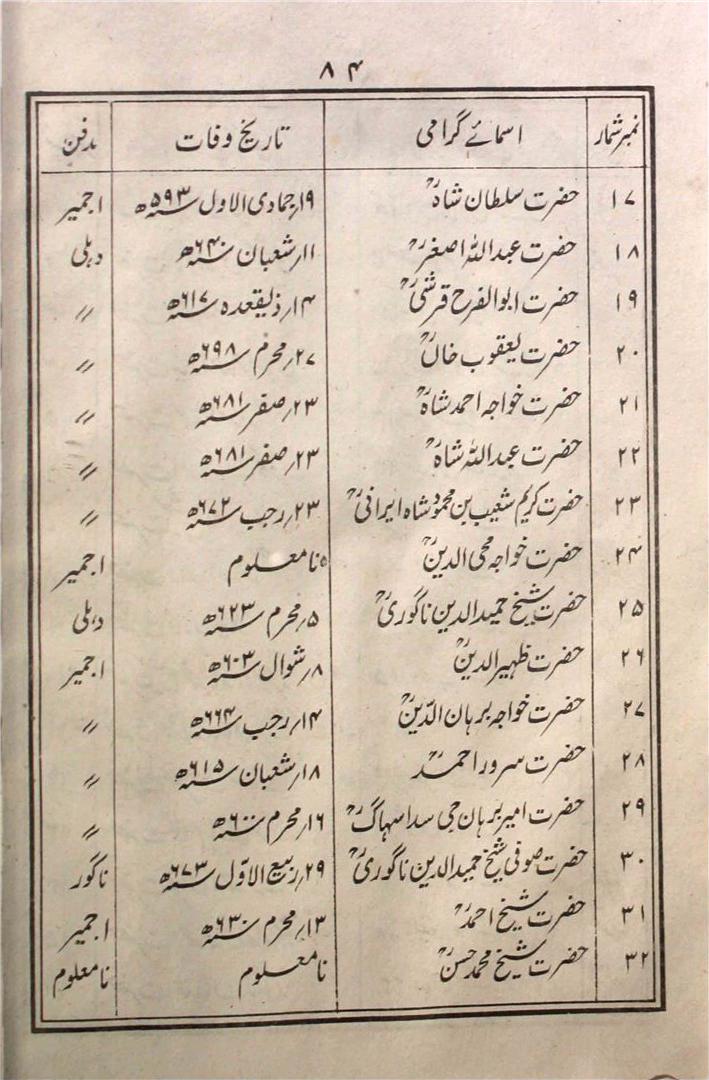 ۸۴
نمبر شمار اسمائے گرامی تاریخ وفات مدفن
۱۷ حضرت سلطان شاہؒ ۱۹؍جمادی الاول سنہ ۵۹۳ھ اجمیر
۱۸ حضرت عبداللہ اصغرؒ ۱۱؍شعبان سنہ ۶۴۰ھ دہلی
۱۹ حضرت ابوالفرح قرشیؒ ۱۴؍ذیقعدہ سنہ ۶۱۷ھ 〃
۲۰ حضرت یعقوب خاںؒ ۲۷؍محرم سنہ ۶۹۸ھ 〃
۲۱ حضرت خواجہ احمد شاہؒ ۲۳؍صفر سنہ ۶۸۱ھ 〃
۲۲ حضرت عبداللہ شاہؒ ۲۳؍صفر سنہ ۶۸۱ھ 〃
۲۳ حضرت کریم شعیب بن محمود شاہ ایرانیؒ ۲۳؍رجب سنہ ۶۷۲ھ 〃
۲۴ حضرت خواجہ محی الدینؒ نامعلوم اجمیر
۲۵ حضرت شیخ حمید الدین ناگوریؒ ۵؍محرم سنہ ۶۲۳ھ دہلی
۲۶ حضرت ظہیر الدینؒ ۸؍شوال سنہ ۶۰۳ھ اجمیر
۲۷ حضرت خواجہ برہان الدّینؒ ۱۴؍رجب سنہ ۶۶۴ھ 〃
۲۸ حضرت سرور احمدؒ ۱۸؍شعبان سنہ ۶۱۵ھ 〃
۲۹ حضرت امیر برہان جی سدا سہاگؒ ۱۶؍محرم سنہ ۶۰۰ھ 〃
۳۰ حضرت صوفی شیخ حمید الدین ناگوریؒ ۲۹؍ربیع الاوّل سنہ ۶۷۳ھ ناگور
۳۱ حضرت شیخ احمدؒ ۱۳؍محرم سنہ ۶۳۰ھ اجمیر
۳۲ حضرت شیخ محمد حسنؒ نامعلوم نامعلوم